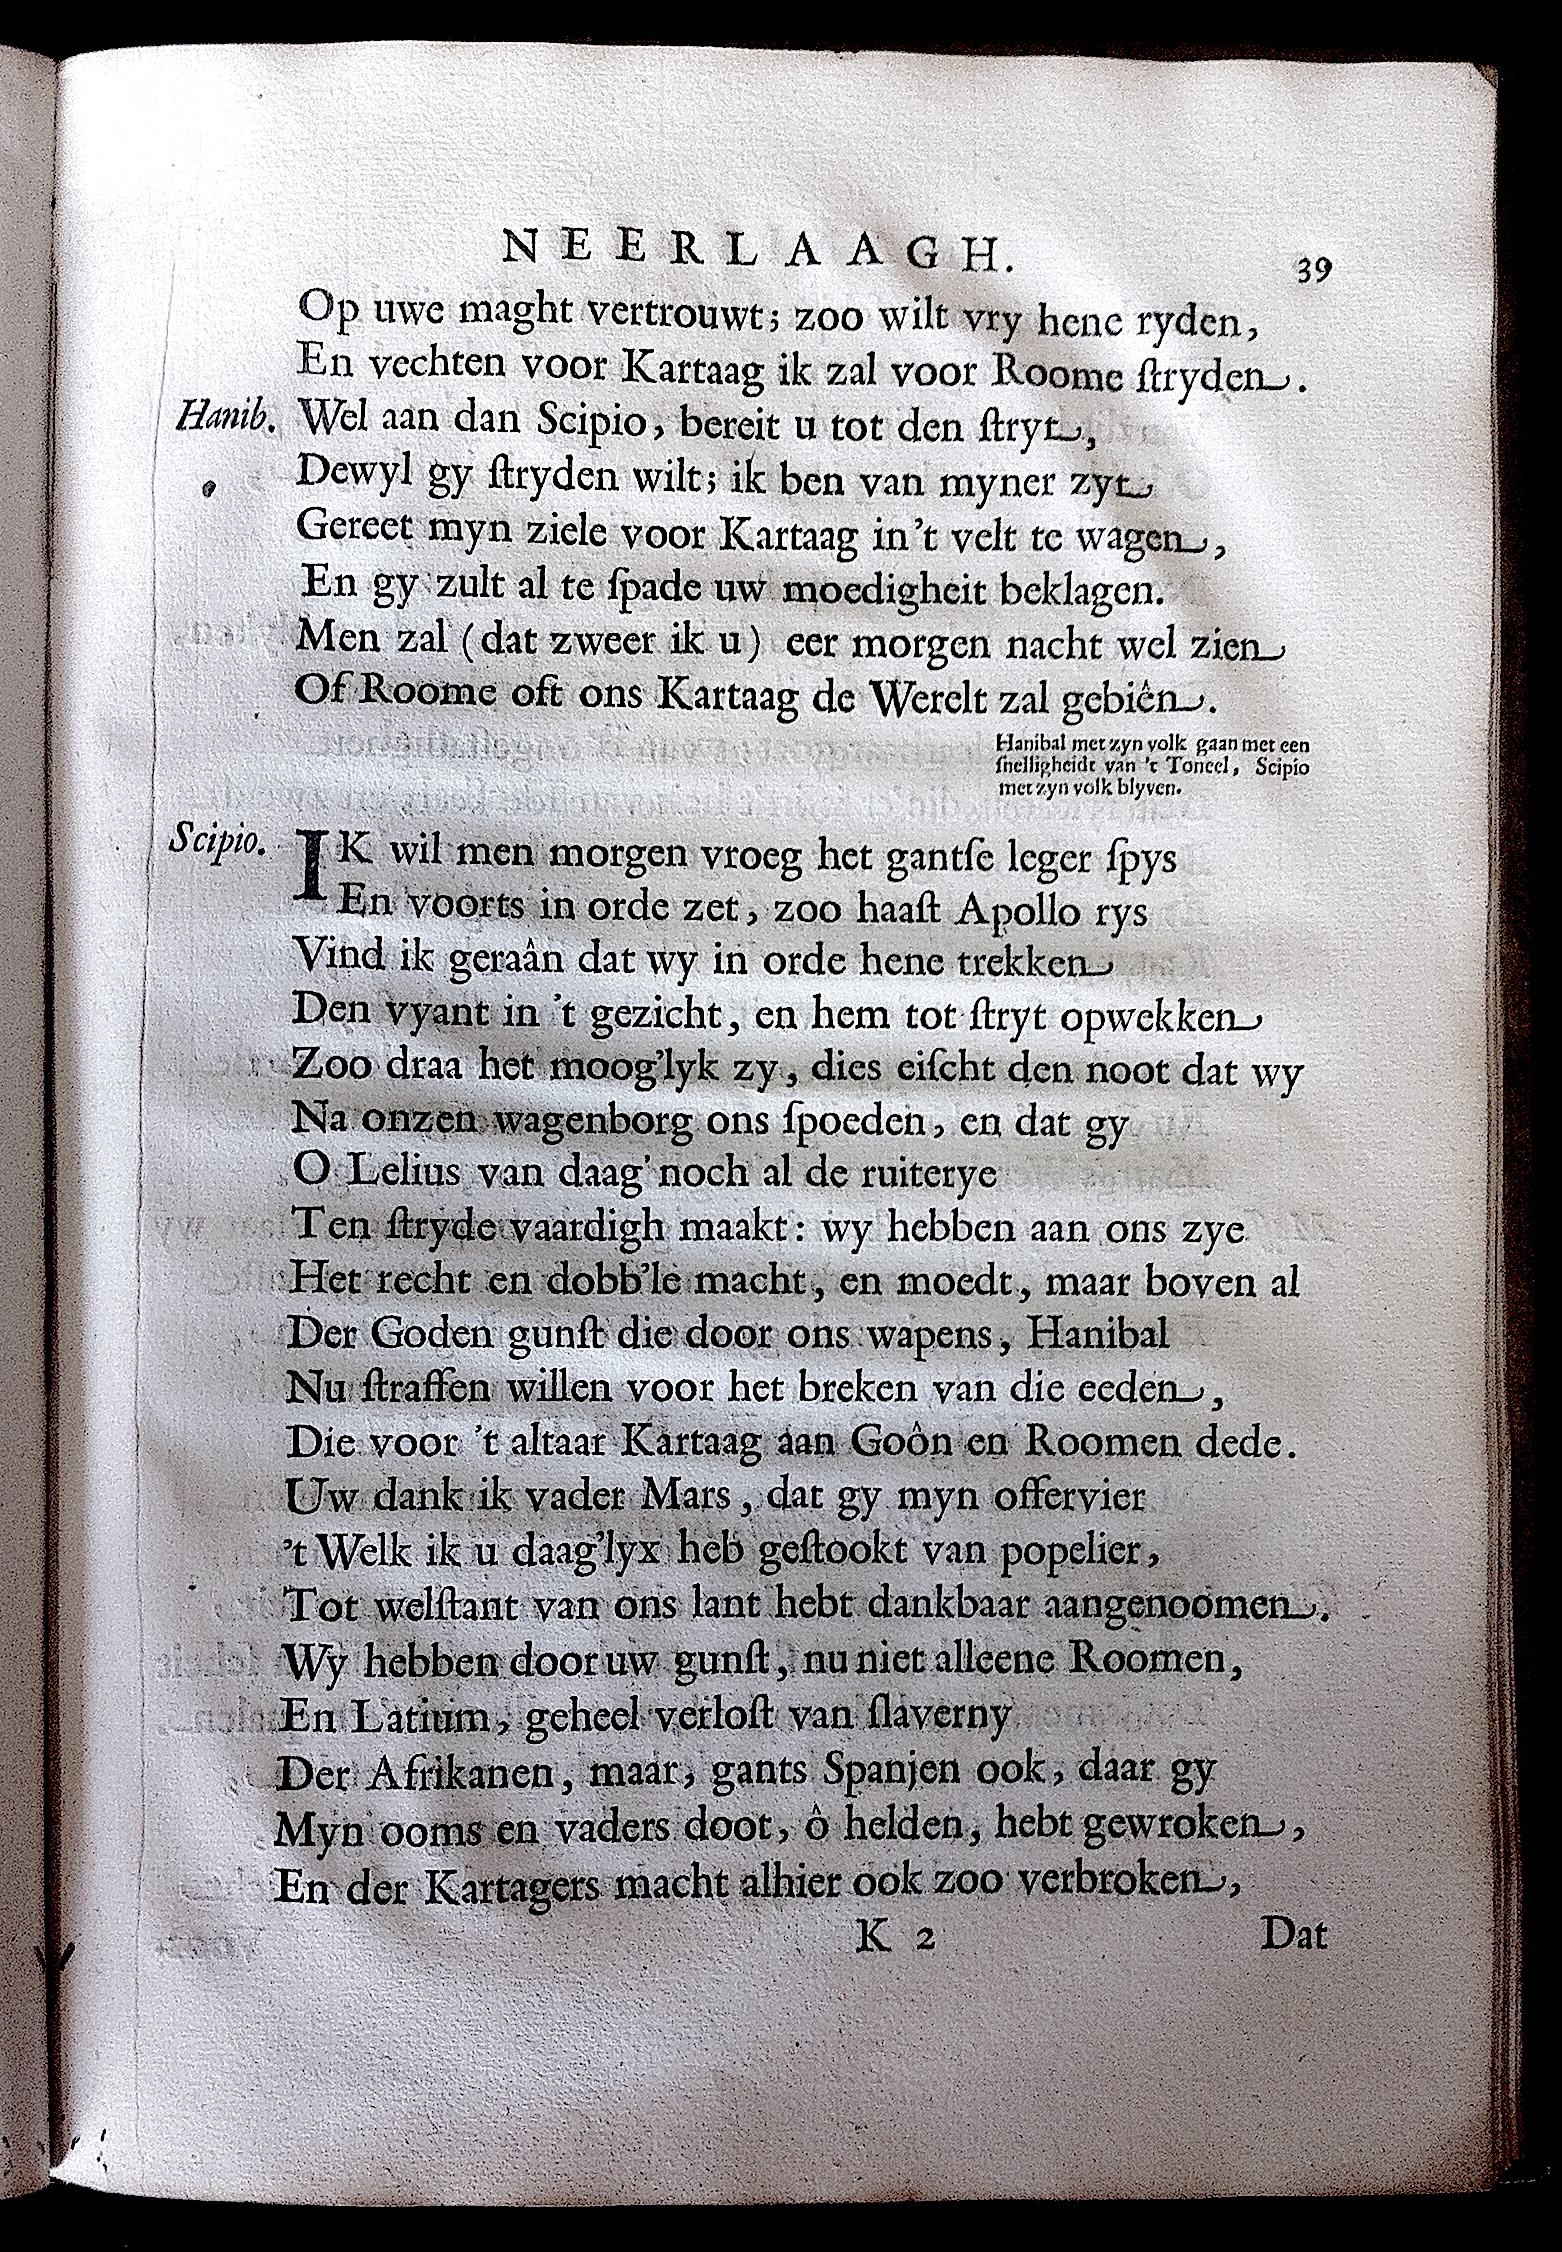 NEERLAAGH. 39
Op uwe maght vertrouwt; zoo wilt vry hene ryden,
En vechten voor Kartaag ik zal voor Roome ſtryden.
Hanib. Wel aan dan Scipio, bereit u tot den ſtryt,
Dewyl gy ſtryden wilt; ik ben van myner zyt
Gereet myn ziele voor Kartaag in 't velt te wagen,
En gy zult al te ſpade uw moedigheit beklagen.
Men zal (dat zweer ik u) eer morgen nacht wel zien
Of Roome oft ons Kartaag de Werelt zal gebiên.
Hanibal met zyn volk gaan met een
ſnelligheidt van 't Toneel, Scipio
met zyn volk blyven.
Scipio. IK wil men morgen vroeg het gantſe leger ſpys
En voorts in orde zet, zoo haaſt Apollo rys
Vind ik geraân dat wy in orde hene trekken
Den vyant in 't gezicht, en hem tot ſtryt opwekken
Zoo draa het moog'lyk zy, dies eiſcht den noot dat wy
Na onzen wagenborg ons ſpoeden, en dat gy
O Lelius van daag' noch al de ruiterye
Ten ſtryde vaardigh maakt: wy hebben aan ons zye
Het recht en dobb'le macht, en moedt, maar boven al
Der Goden gunſt die door ons wapens, Hanibal
Nu ſtraffen willen voor het breken van die eeden,
Die voor 't altaar Kartaag aan Goôn en Roomen dede.
Uw dank ik vader Mars, dat gy myn offervier
't Welk ik u daag'lyx heb geſtookt van popelier,
Tot welſtant van ons lant hebt dankbaar aangenoomen.
Wy hebben door uw gunſt, nu niet alleene Roomen,
En Latium, geheel verloſt van ſlaverny
Der Afrikanen, maar, gants Spanjen ook, daar gy
Myn ooms en vaders doot, ô helden, hebt gewroken,
En der Kartagers macht alhier ook zoo verbroken,
K 2 Dat